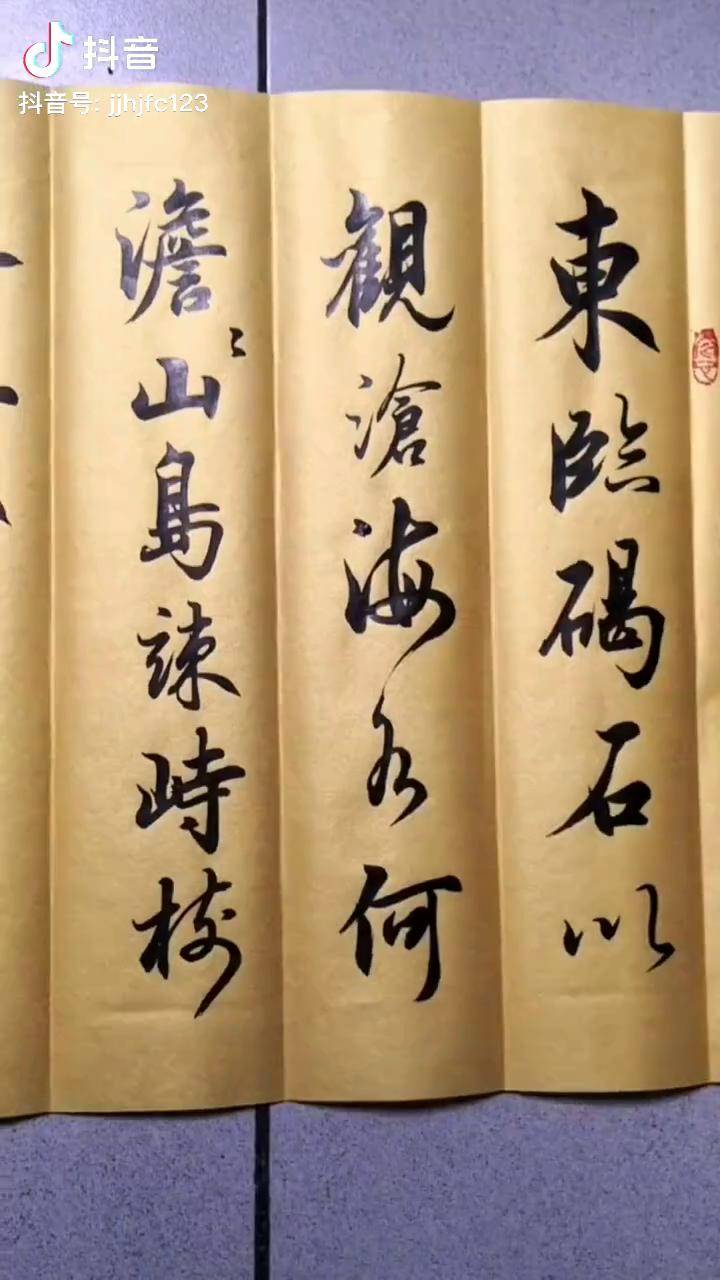 抖音
抖音号: jjhjfc123
東臨碣石以
觀滄海水何
澹〻山島竦峙樹